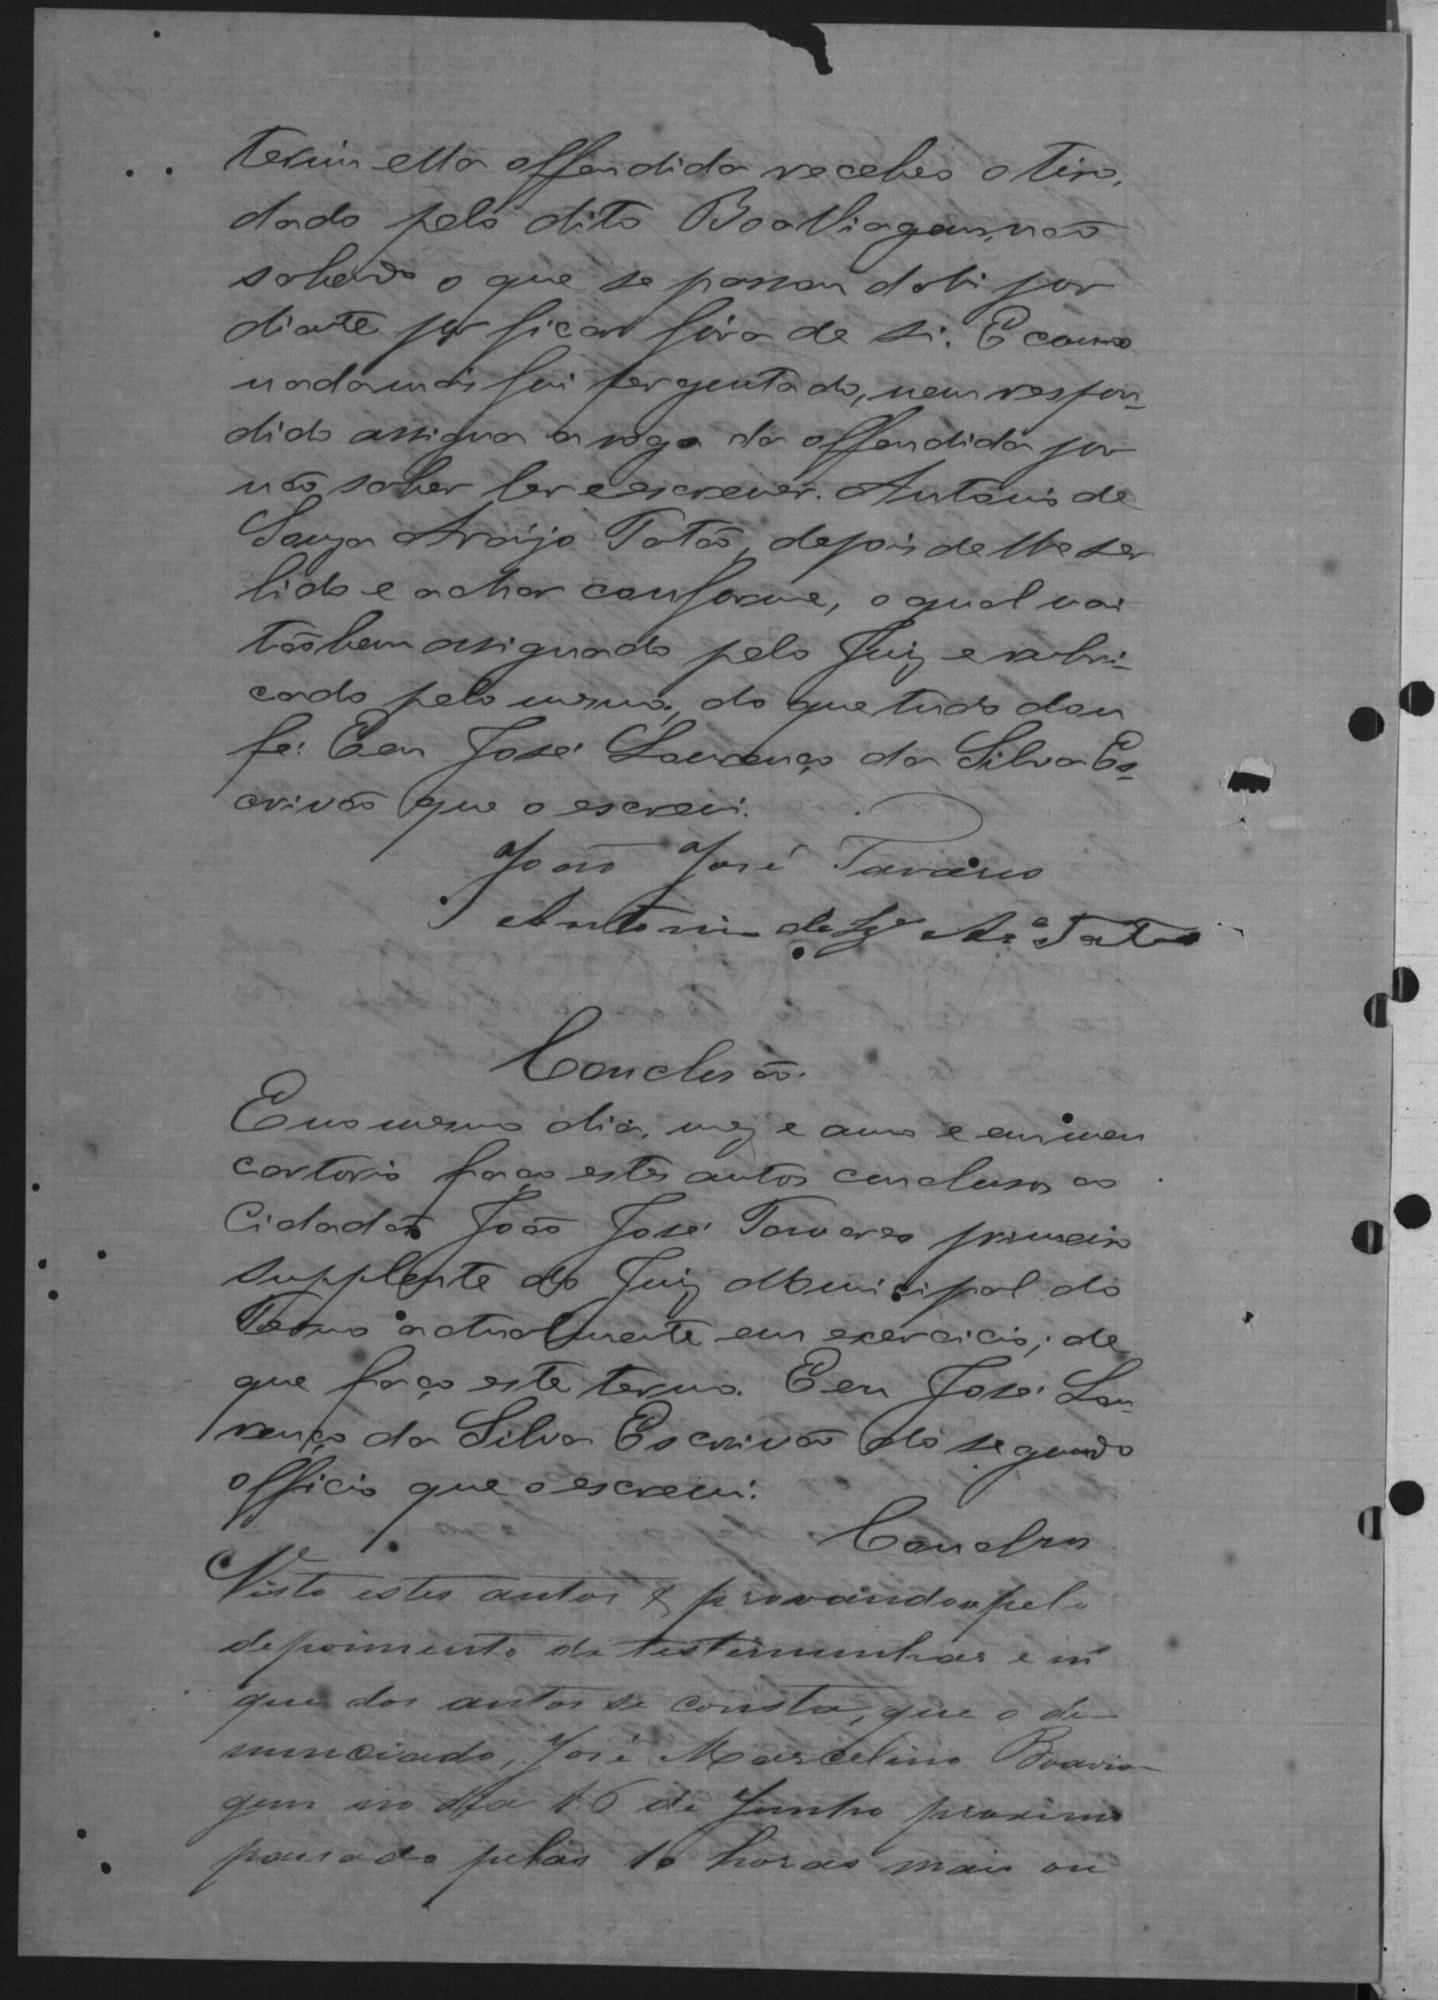 terim ella offendida recebeo o tiro,
dado pelo dito Boa Viagem, não
sabendo o que se passou dahi por
diante por ficar fóra de si. E como
nada mais foi perguntado, nem respon-
dido assigna a rogo da offendida por
não saber ler e escrever. Antonio de
Souza Araújo Tatão, depois de lhe ser
lido e achar conforme, o qual vai
tãobem assignado pelo Juiz e rubri-
cado pelo mesmo, do que tudo dou
fé: E eu José Lourenço da Silva Es-
crivão que o escrevi.
João José Tavares
Antonio de Sza Ar.º Tatão
Conclusão.
E no mesmo dia, mez e anno e em meu
cartorio faço estes autos conclusos ao
Cidadão João José Tavares primeiro
supplente do Juiz Municipal do
Termo actualmente em exercicio; de
que faço este termo. E eu José Lou-
renço da Silva Escrivão do segundo
officio que o escrevi.
Conclsos
Visto estes autos & provando pelo
depoimento de testimunhas e m
que dos autos se consta, que o de-
nunciado, José Marcelino Boavia-
gem no dia 16 de Junho proximo
passado pelas 10 horas mais ou